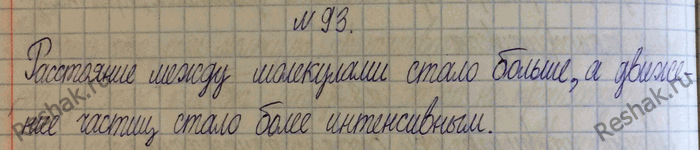 № 93.
Расстояние между молекулами стало больше, а движе
ние частиц стало более интенсивным.
Reshak.ru
Reshak.ru